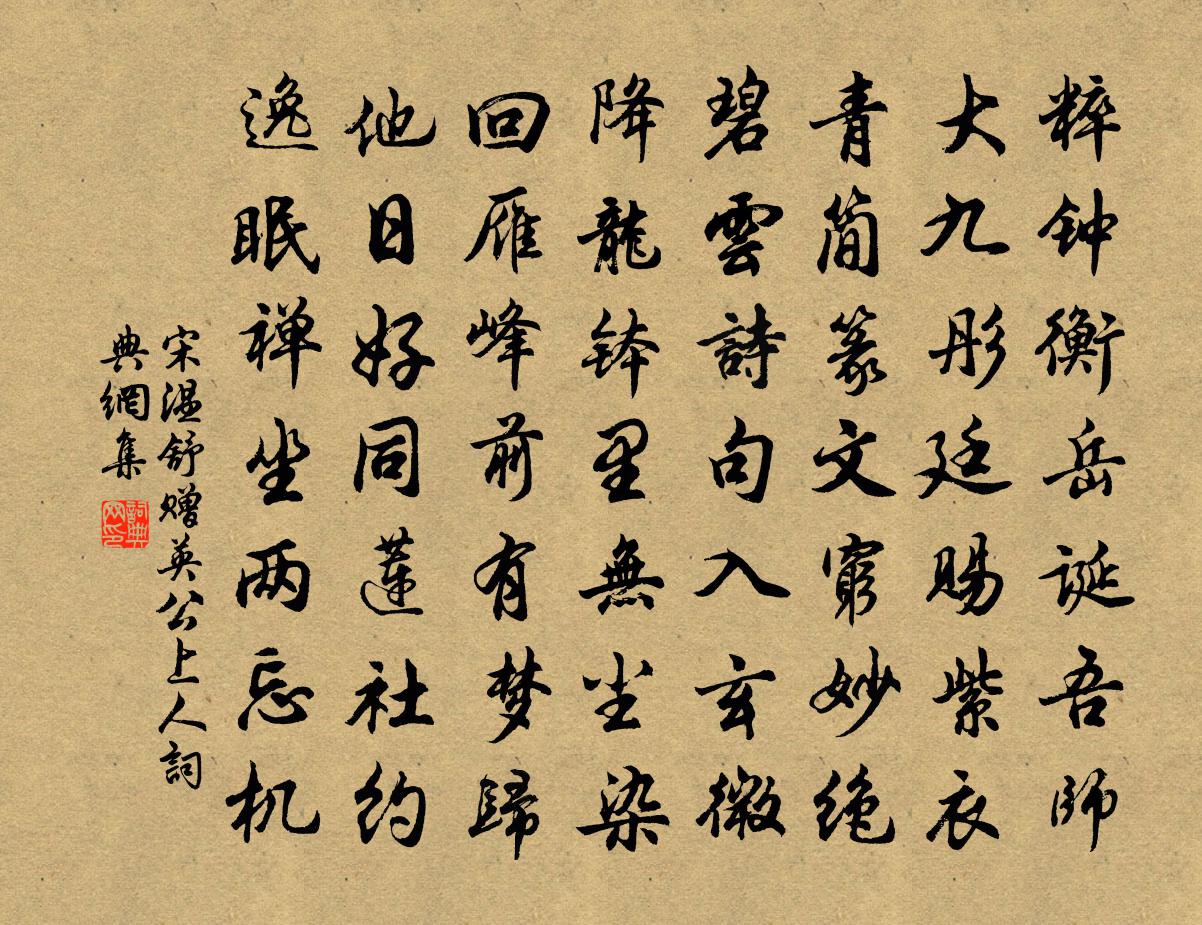 粹钟衡岳誕吾師
大九彤廷赐紫衣
青简篆文窮妙绝
碧雲詩句入玄微
降龍钵里無尘染
回雁峰前有梦歸
他日好同蓮社约
逸眠禅坐两忘机
宋温舒赠英公上人詞
典網集
詞典网印